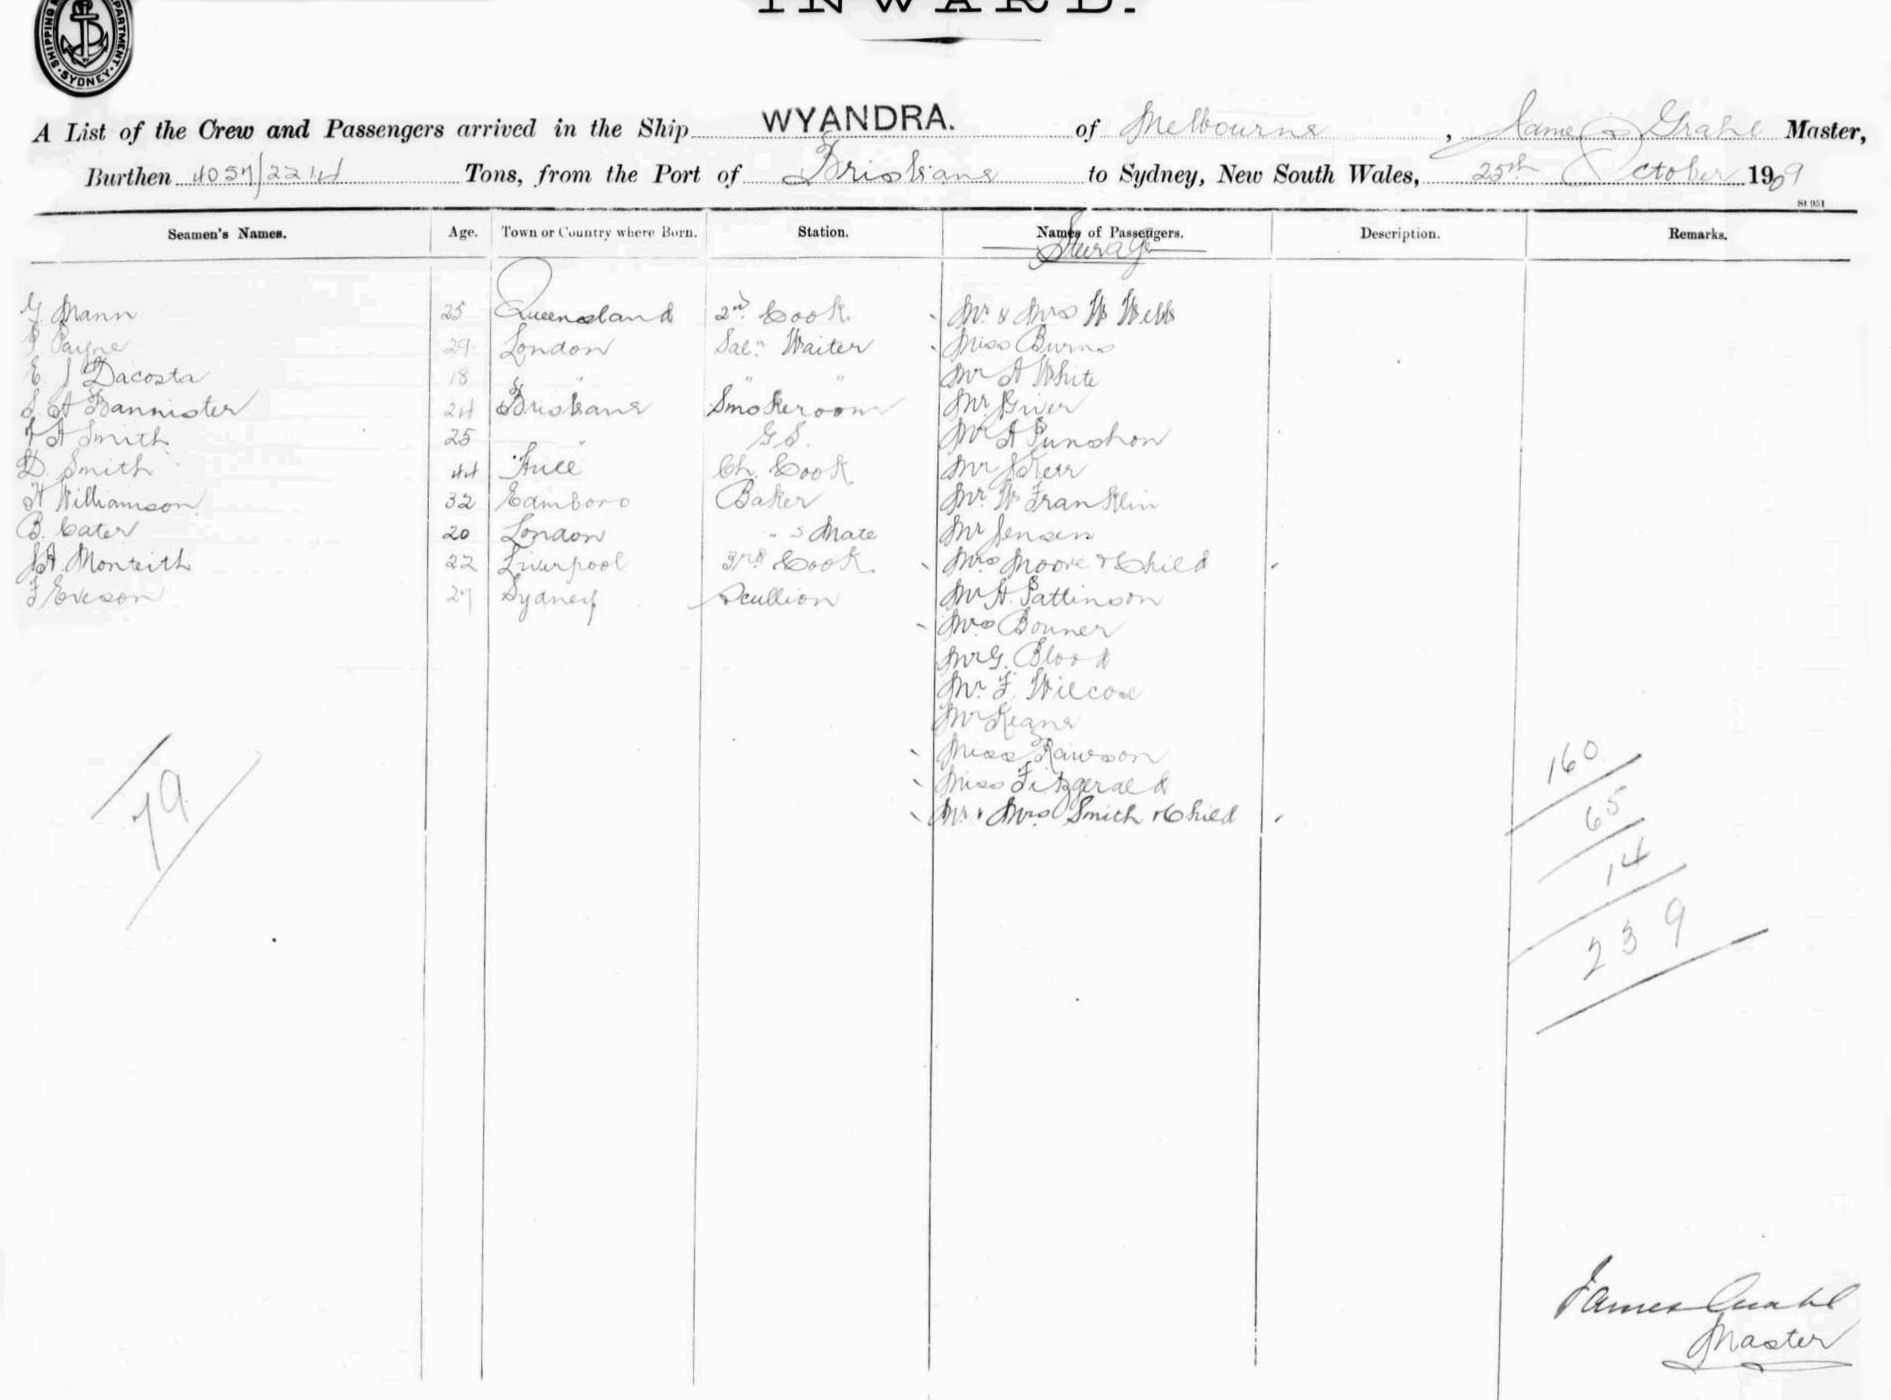 INWARD.
SHIPPING DEPARTMENT SYDNEY
A List of the Crew and Passengers arrived in the Ship WYANDRA. of Melbourne, James Grahl Master,
Burthen 4057/2214 Tons, from the Port of Brisbane to Sydney, New South Wales, 25th October 1909
St 951
Seamen's Names. Age. Town or Country where Born. Station. Names of Passengers. Description. Remarks.
Steerage
G. Mann 25 Queensland 2nd Cook Mr & Mrs W Webb
P Payne 29 London Saln Waiter Miss Burns
E J Dacosta 18 " " " " Mr A White
S. A Bannister 24 Brisbane Smokeroom Mr Giver
A Smith 25 " G.S. Mr A Punshon
D. Smith 44 Hull Ch. Cook Mr J Kerr
H Williamson 32 Edinboro Baker Mr. W Franklin
B. Cater 20 London " s Mate Mr Jensen
J.A. Monteith 22 Liverpool 3rd Cook Mrs Moore & Child
F Eveson 27 Sydney Scullion Mr H. Pattinson
Mrs Bonner
Mr G. Blood
Mr. F. Wilcox
Mr Keane
Miss Rawson
Miss Fitzgerald
Mr & Mrs Smith & Child
79
160
65
14
239
James Grahl
Master